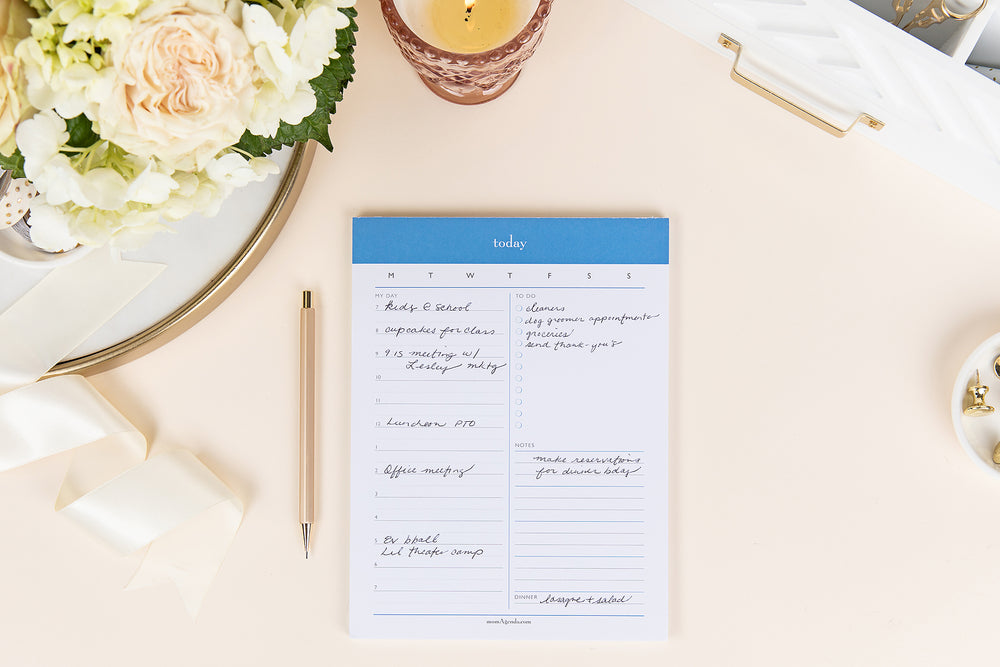 today
M T W T F S S
MY DAY
7 Kids @ School
8 cupcakes for class
9 9 15 meeting w/
Lesley mktg
10
11
12 Luncheon PTO
1
2 Office meeting
3
4
5 Ev bball
Lil theater camp
6
7
TO DO
cleaners
dog groomer appointments
groceries
send thank-you's
NOTES
make reservations
for dinner bday
DINNER lasagne + salad
momAgenda.com